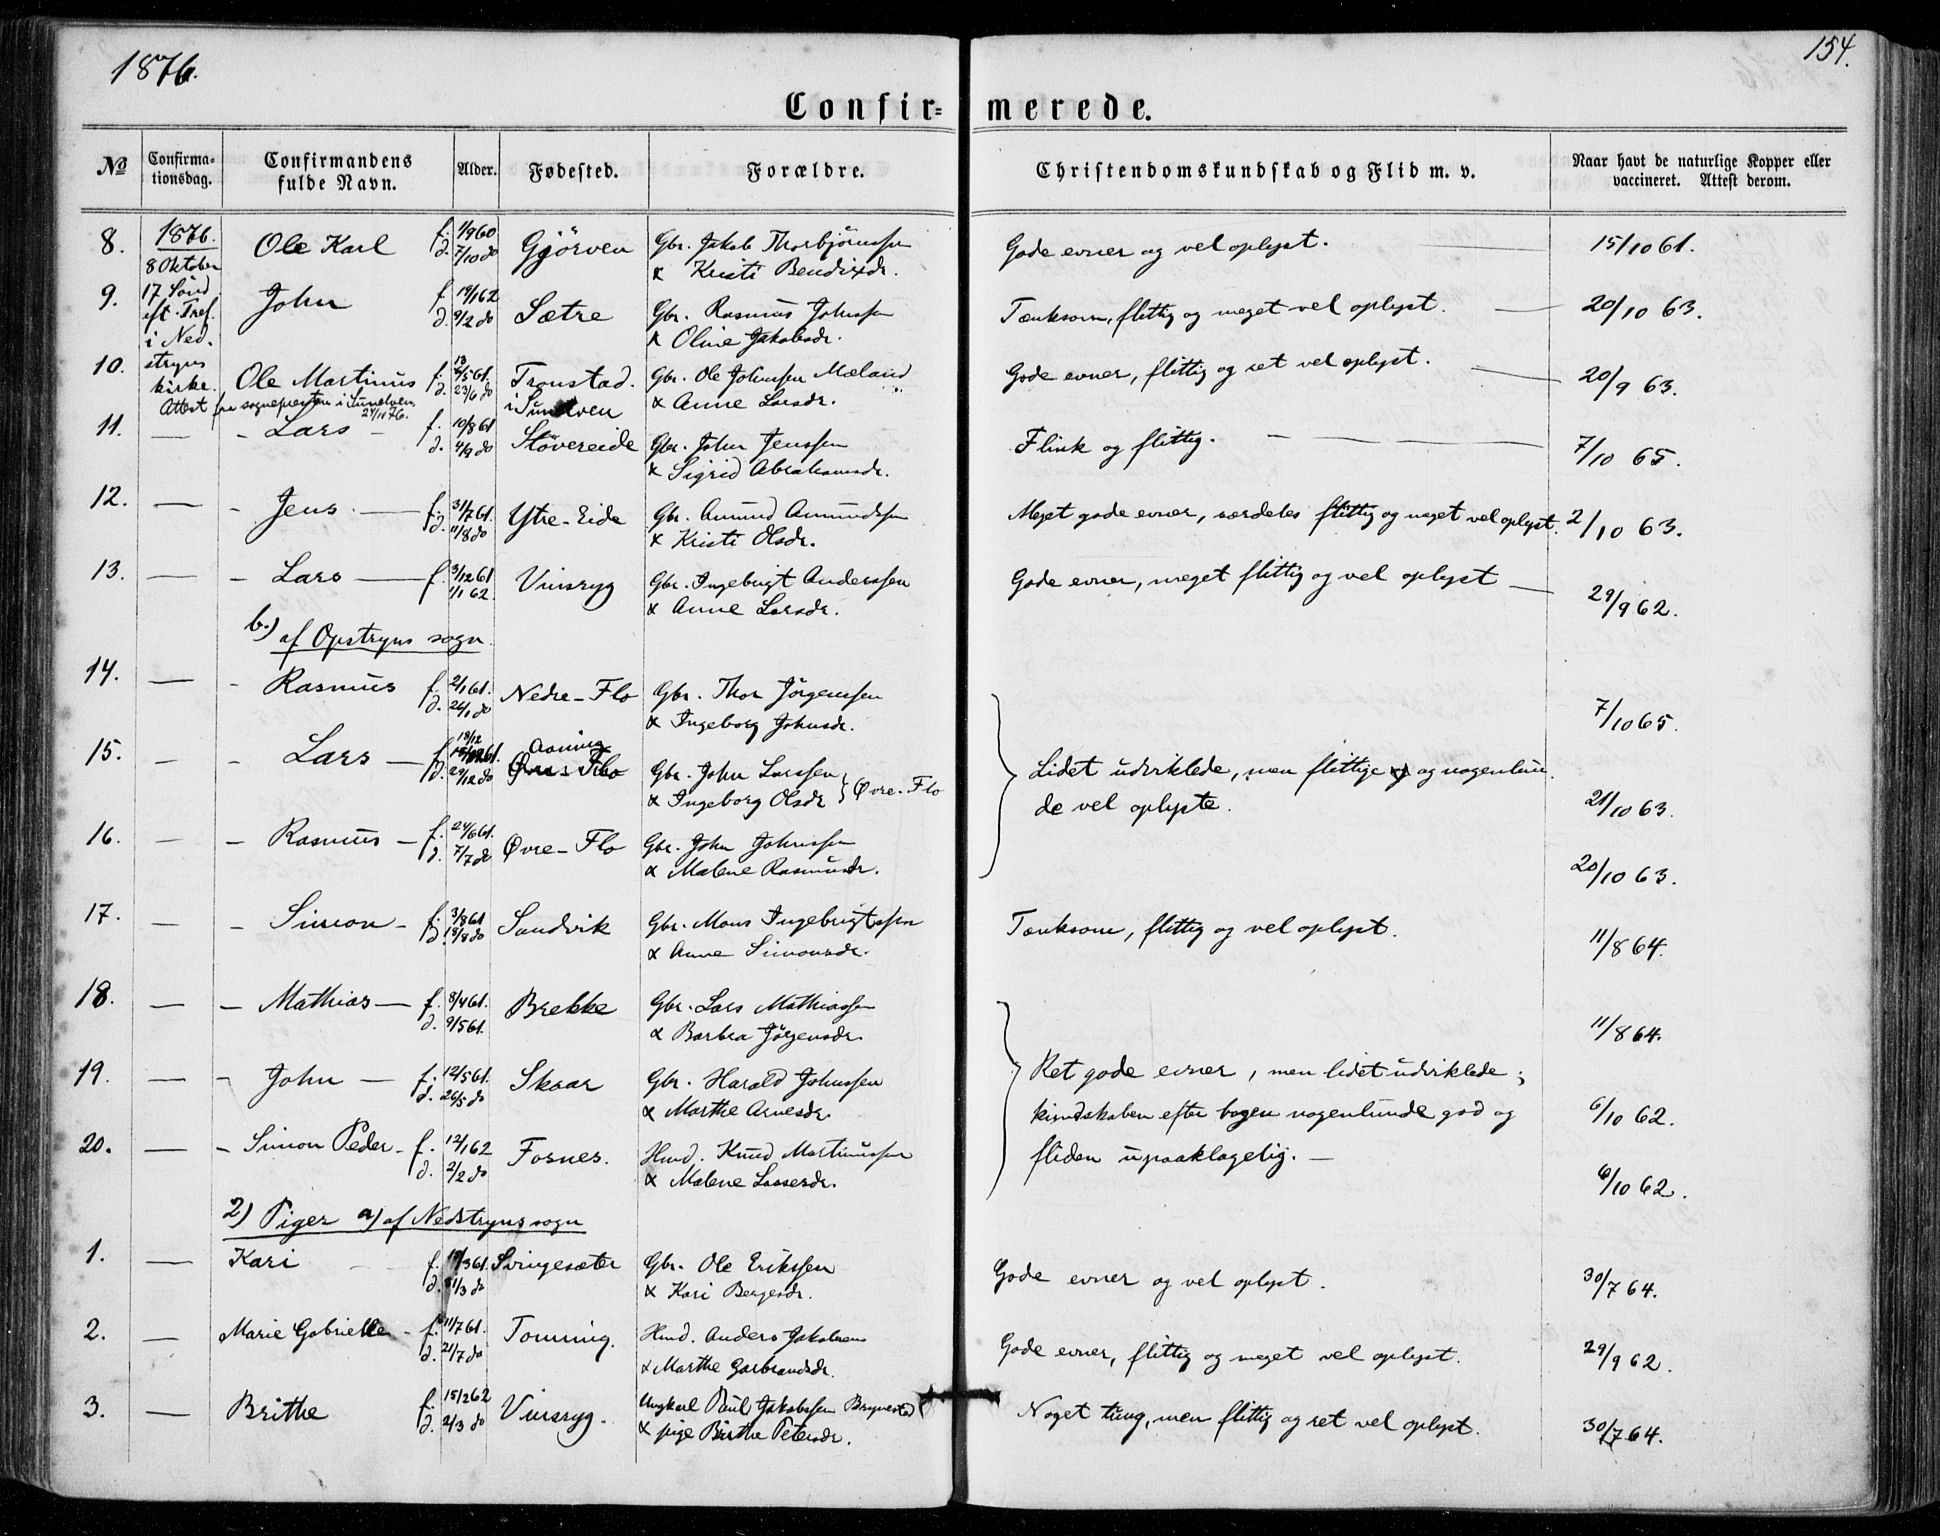 1876.
154.
Confir= merede.
№ Confirma-tionsdag. Confirmandens fulde Navn. Alder. Fødested. Forældre. Christendomskundskab og Flid m. v. Naar havt de naturlige Kopper eller vaccineret. Attest derom.
8. 1876. Ole Karl f. 1/9 60 Gjörven Gbr. Jakob Thorbjörnssen Gode evner og vel oplyst. 15/10 61.
8 Oktober d. 7/10 do & Kristi Bendixdr.
9. 17 Sönd. John f. 19/1 62 Sætre Gbr. Rasmus Johnssen Tænksom, flittig og meget vel oplyst. 20/10 63.
eft. Tref. d. 9/2 do & Oline Jakobsdr.
i Ned-
10. stryns Ole Martinus f. 13/5 61. Tronstad. Gbr. Ole Johnssen Mæland Gode evner, flittig og ret vel oplyst. 20/9 63.
kirke. d. 23/6 do i Sunelven & Anne Larsdr.
Attest fra sognepresten i Sunelven 24/10 76.
11. — - Lars - f. 10/8 61 Stövereide Gbr. John Jenssen Flink og flittig. 7/10 65.
d. 4/9 do & Sigrid Abrahamsdr.
12. — - Jens — f. 31/7 61. Ytre-Eide Gbr. Amund Amundssen Meget gode evner, særdeles flittig og meget vel oplyst. 2/10 63.
d. 11/8 do & Kristi Olsdr.
13. — - Lars — f. 3/12 61 Vinsryg Gbr. Ingebrigt Anderssen Gode evner, meget flittig og vel oplyst — 29/9 62.
1/1 62. & Anne Larsdr.
b.) af Opstryns sogn.
14. — - Rasmus f. 2/1 61. Nedre-Flo Gbr. Thor Jörgenssen 7/10 65.
d. 26/1 do & Ingeborg Johnsdr.
15. — - Lars — f. 18/12 61. Aaning Gbr. John Larssen Lidet udviklede, men flittige og nogenlun-
d. 29/12 do Øvre-Flo & Ingeborg Olsdr. } Øvre-Flo de vel oplyste. 21/10 63.
16. — - Rasmus — f. 24/6 61. Øvre-Flo Gbr. John Johnssen 20/10 63.
d. 7/7 do & Malene Rasmusdr.
17. — - Simon - f. 3/8 61 Sandvik Gbr. Mons Ingebrigtssen Tænksom, flittig og vel oplyst. 11/8 64.
d. 18/8 do & Anne Simonsdr.
18. — - Mathias — f. 8/4 61. Brekke Gbr. Lars Mathiassen 11/8 64.
d. 9/5 61. & Barbra Jörgensdr.
19. — - John — f. 12/5 61. Skaar Gbr. Harald Johnssen Ret gode evner, men lidet udviklede;
d. 26/5 do & Marthe Arnesdr. kundskaben efter bogen nogenlunde god og 6/10 62.
20. — - Simon Peder - f. 12/1 62 Fosnes. Hmd. Knud Martinussen fliden upaaklagelig. —
d. 2/2 do & Malene Lassesdr. 6/10 62.
2) Piger a) af Nedstryns sogn
1. — Kari f. 19/3 61. Svingesæter Gbr. Ole Erikssen Gode evner og vel oplyst. 30/7 64.
d. 31/3 do & Kari Bergesdr.
2. — Marie Gabrielle - f. 11/7 61. Tomming. Hmd. Anders Jakobsen Gode evner, flittig og meget vel oplyst. 29/9 62.
d. 21/7 do & Marthe Garbrandsdr.
3. — Brithe f. 15/2 62 Vinsryg. Ungkarl Paul Jakobssen Brynestad Noget tung, men flittig og ret vel oplyst. 30/7 64.
d. 2/3 do & pige Birthe Petersdr.